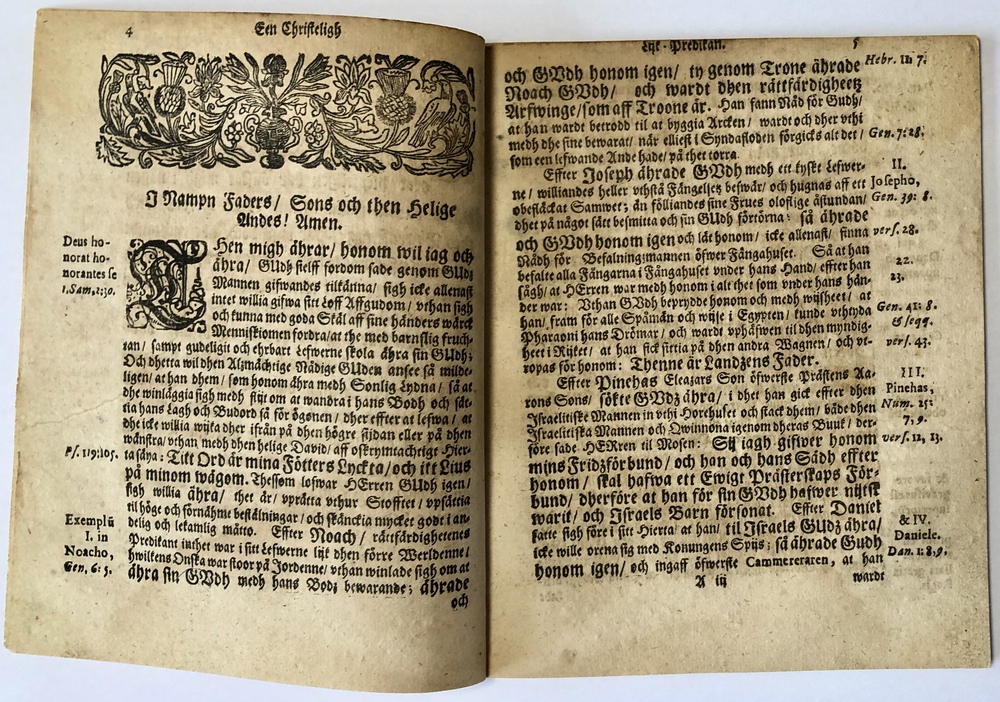 4
Een Christeligh
I Nampn Faders/ Sons och then Helige
Andes! Amen.
Deus ho-
norat ho-
norantes se
1. Sam. 2:30.
Hen migh ährar/ honom wil iag och
ähra/ GUdh sielff fordom sade genom GUdz
Mannen gifwandes tilkänna/ sigh icke allenast
intet willia gifwa sitt Loff Affgudom/ vthan sigh
och kunna med goda Skäl aff sine händers wärck
Menniskiomen fordra/ at the med barnslig fruch-
tan/ sampt gudeligit och ehrbart Lefwerne skola ähra sin GUdh;
Och dhetta wil dhen Alzmächtige Nådige GUden ansee så milde-
ligen/ at han dhem/ som honom ähra medh Sonlig Lydna/ så at
dhe winläggia sigh medh flijt om at wandra i hans Bodh och sät-
tia hans Lagh och Budord så för ögonen/ dher effter at lefwa/ at
dhe icke willia wijka dher ifrån på dhen högre sijdan eller på dhen
wänstra/ vthan medh dhen helige David/ aff oskrymtachtige Hier-
Ps. 119:105.
ta säya: Titt Ord är mina Fötters Lyckta/ och itt Lius
på minom wägom. Thessom lofwar HErren GUdh igen/
sigh willia ähra/ thet är/ vprätta vthur Stofftet/ vpsättia
til höge och förnähme beställningar/ och skänckia mycket godt i an-
delig och lekamlig måtto. Effter Noach/ rättfärdighetenes
Exemplū
I. in
Noacho,
Gen. 6: 5.
Predikant inthet war i sitt Lefwerne lijk dhen förre Werldenne/
hwilkens Onska war stoor på Jordenne/ vthan winlade sigh om at
ähra sin GUdh medh hans Bodz bewarande; ährade
och
Lijk-Predikan.
5
och GUdh honom igen/ ty genom Trone ährade
Hebr. 11: 7.
Noach GUdh/ och wardt dhen rättfärdigheetz
Arfwinge/ som aff Troone är. Han fann Nåd för Gudh/
at han wardt betrodd til at byggia Arcken/ wardt och dher vthi
medh dhe sine bewarat/ när elliest i Syndafloden förgicks alt det/
Gen. 7: 28.
som een lefwande Ande hade/ på thet torra.
II.
Josepho,
Gen. 39: 8.
Effter Joseph ährade GUdh medh ett kyskt Lefwer-
ne/ williandes heller vthstå Fängelsetz beswär/ och hugnas aff ett
obefläckat Samwet; än fölliandes sine Frues oloflige åstundan/
dhet på något sätt besmitta och sin GUdh förtörna: så ährade
och GUdh honom igen och lät honom/ icke allenast/ finna
vers. 28.
Nådh för Befalningzmannen öfwer Fångahuset. Så at han
22.
befalte alla Fångarna i Fångahuset vnder hans Hand/ effter han
23.
sågh/ at HErren war medh honom i alt thet som vnder hans hän-
der war: Vthan GUdh beprydde honom medh wijsheet/ at
Gen. 41: 8.
& seqq.
han/ fram för alle Spåmän och wijse i Egypten/ kunde vthtyda
Pharaoni hans Drömar/ och wardt vphäfwen til dhen myndig-
heet i Rijket/ at han fick sittia på dhen andra Wagnen/ och vt-
vers. 43.
ropas för honom: Thenne är Landzens Fader.
III.
Pinehas,
Num. 25:
7, 9.
Effter Pinehas Eleazars Son öfwerste Prästens Aa-
rons Sons/ sökte GUdz ähra/ i dhet han gick effter dhen
Israelitiske Mannen in vthi Horehuset och stack dhem/ både dhen
Israelitiska Mannen och Qwinnona igenom dheras Buuk/ der-
före sade HERren til Mosen: Sij iagh gifwer honom
vers. 12, 13.
mins Fridzförbund/ och han och hans Sädh effter
honom/ skal hafwa ett Ewigt Prästerskaps För-
bund/ dherföre at han för sin GUdh hafwer nijtsk
warit/ och Israels Barn försonat. Effter Daniel
& IV.
Daniele.
Dan. 1: 8, 9.
satte sigh före i sitt Hierta/ at han/ til Israels GUdz ähra/
icke wille orena sig med Konungens Spijs; så ährade Gudh
honom igen/ och ingaff öfwerste Cammereraren, at han
A iij
wardt